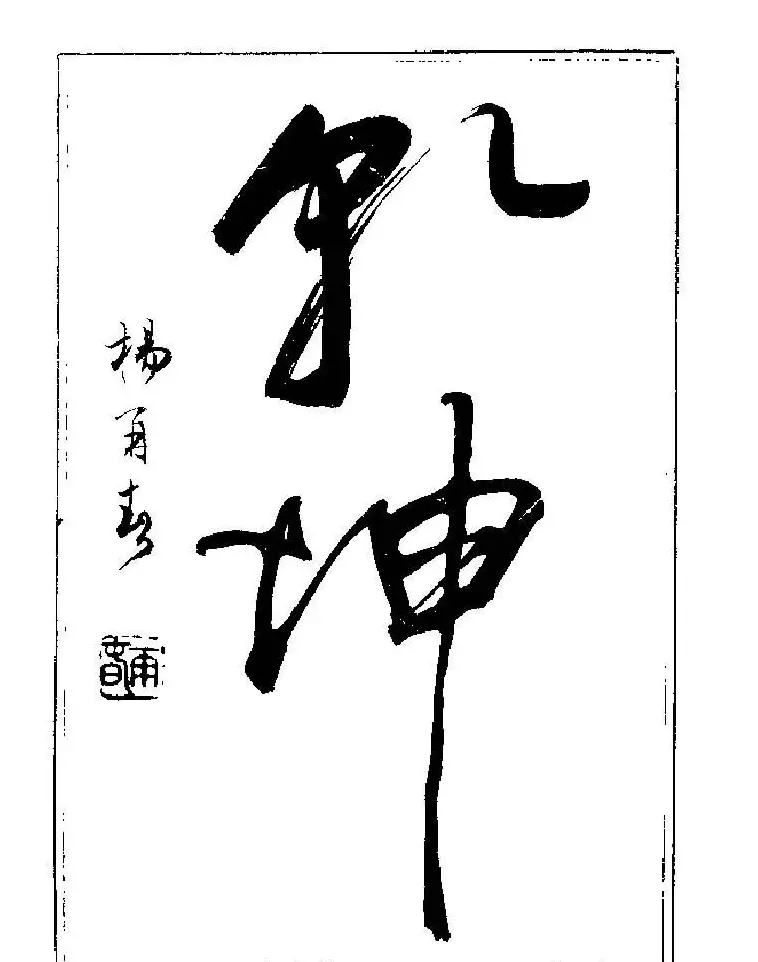 乾坤
楊再春